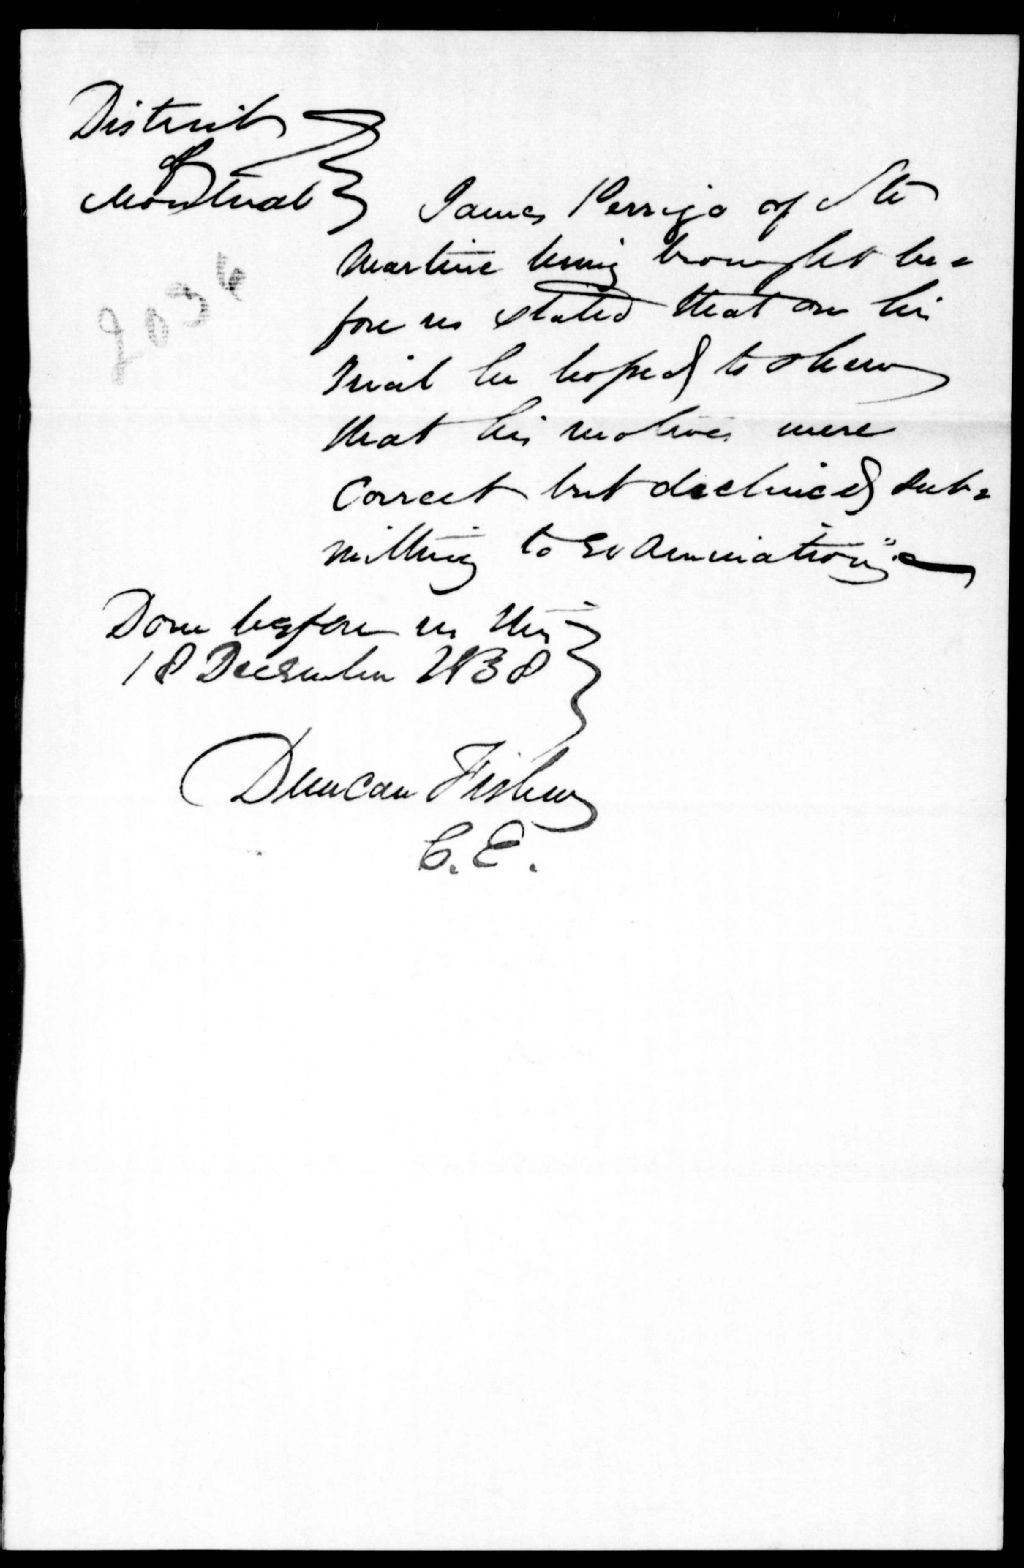 District
of
Montreal
James Perrigo of Ste
Martine being brought be=
fore us stated that on his
trial he hoped to shew
that his motives were
correct but declined sub=
mitting to examination".
2036
Done before us this
18 December 1838
Duncan Fisher
C. E.